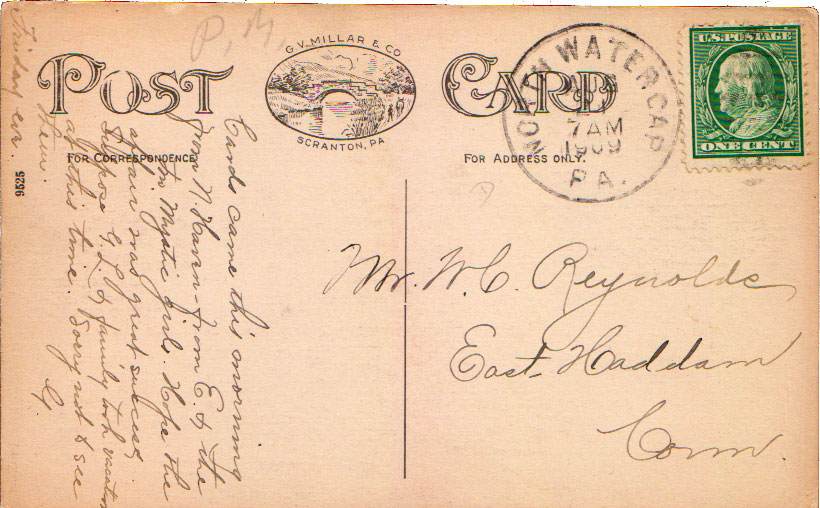 P.M.
G.V. MILLAR & CO
SCRANTON, PA
POST CARD
FOR CORRESPONDENCE
FOR ADDRESS ONLY.
9525
WATER GAP
7 AM
1909
PA.
U.S. POSTAGE
ONE CENT
Friday eve.
Cards came this morning
from N. Haven - from E. & the
Mystic girl. Hope the
affair was great success.
Suppose G. L. & family took vacation
at this time. Sorry not to see
them.
G.
Mr. W. C. Reynolds
East Haddam
Conn.